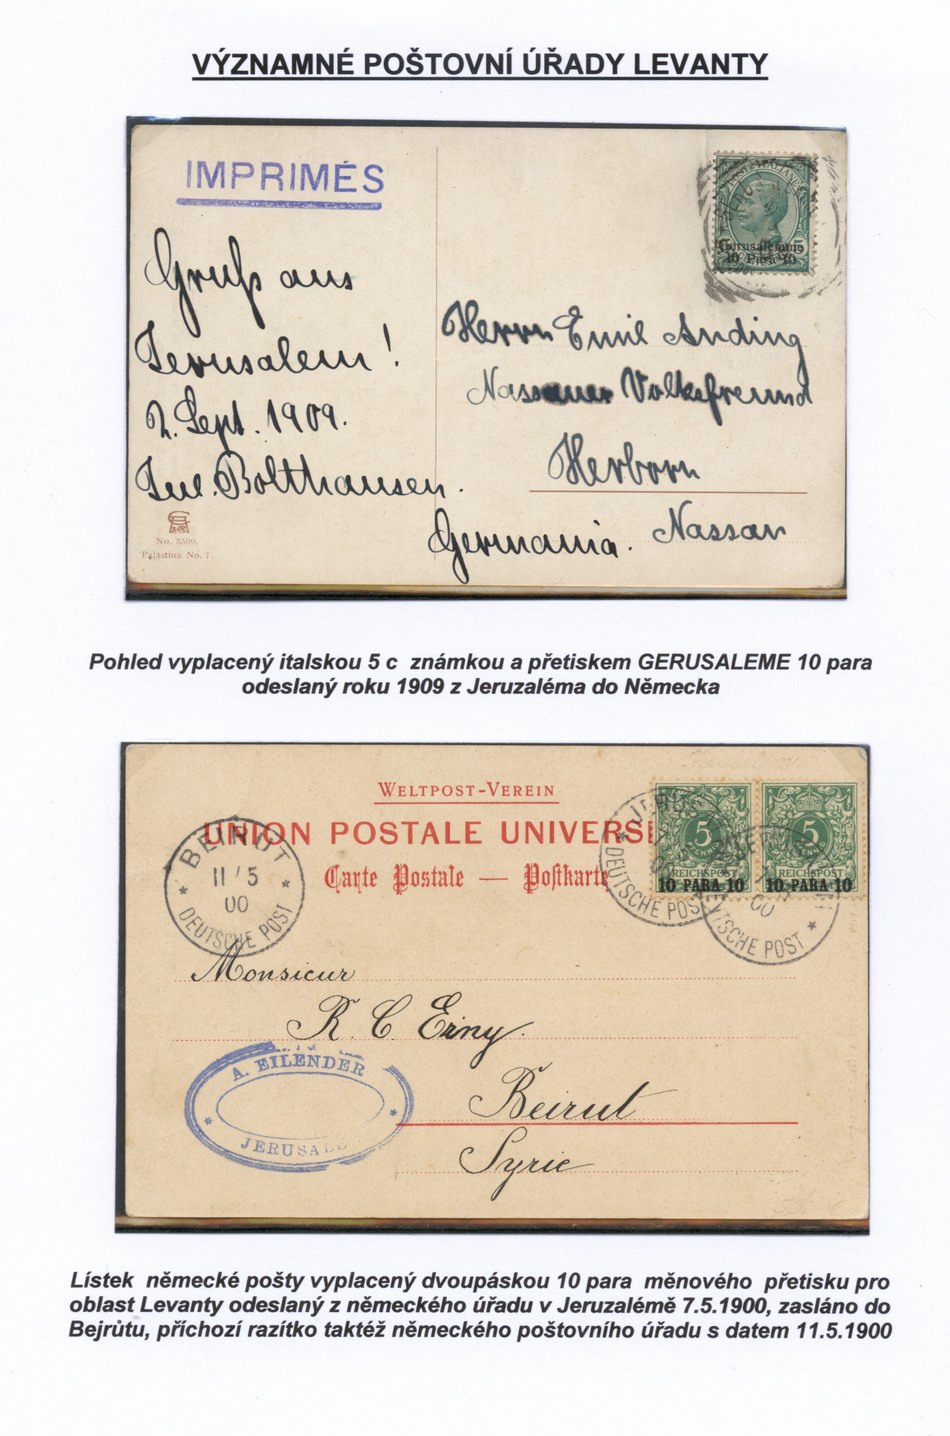 VÝZNAMNÉ POŠTOVNÍ ÚŘADY LEVANTY
IMPRIMÉS
Gerusalemme
10 Para 10
Gruß aus
Jerusalem!
2. Sept. 1909.
Jul. Bolthausen.
Herrn Emil Anding
Nassauer Volksfreund
Herborn
Nassau
Germania.
No. 3599.
Palästina No. 7.
Pohled vyplacený italskou 5 c známkou a přetiskem GERUSALEME 10 para
odeslaný roku 1909 z Jeruzaléma do Německa
WELTPOST-VEREIN
UNION POSTALE UNIVERSE
Carte Postale — Postkarte
BEIRUT
11/5
00
* DEUTSCHE POST *
5 5
REICHSPOST REICHSPOST
10 PARA 10 10 PARA 10
JERUS
DEUTSCHE POST
00
TSCHE POST *
Monsieur
R. C. Erny.
Beirut
Syrie
A. EILENDER
* *
JERUSALE
Lístek německé pošty vyplacený dvoupáskou 10 para měnového přetisku pro
oblast Levanty odeslaný z německého úřadu v Jeruzalémě 7.5.1900, zasláno do
Bejrůtu, příchozí razítko taktéž německého poštovního úřadu s datem 11.5.1900